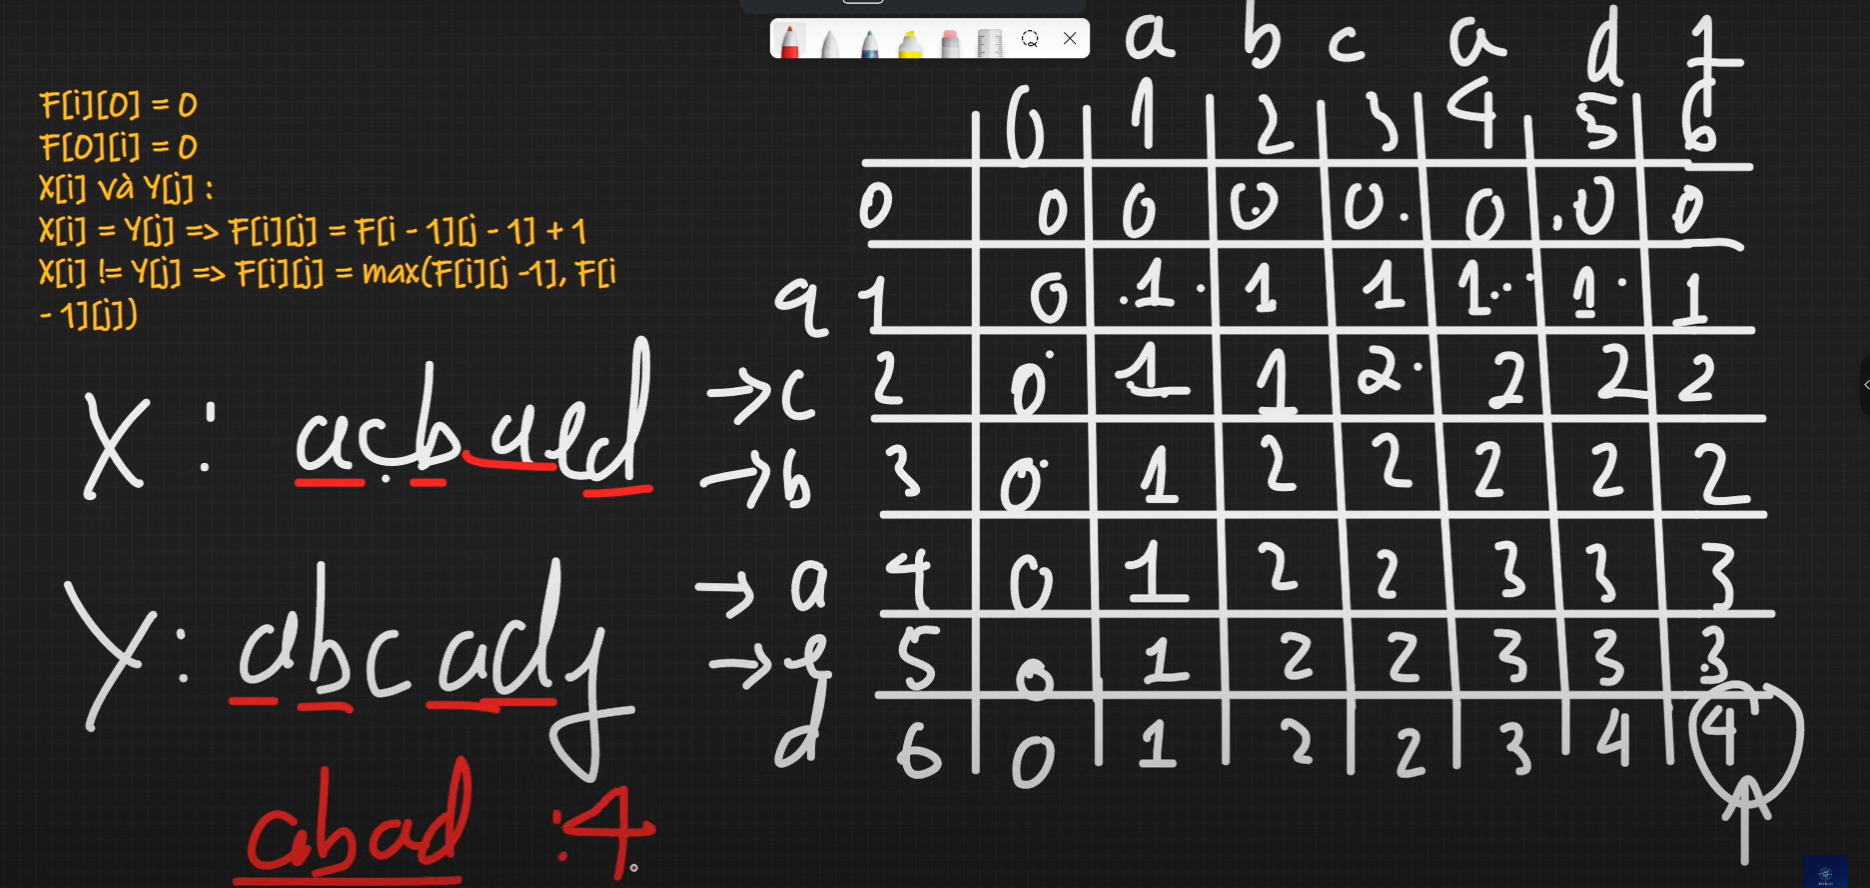 F[i][0] = 0
F[0][i] = 0
X[i] và Y[j] :
X[i] = Y[j] => F[i][j] = F[i - 1][j - 1] + 1
X[i] != Y[j] => F[i][j] = max(F[i][j -1], F[i
- 1][j])
X : acbaed
Y : abcadf
abad : 4
a b c a d f
0 1 2 3 4 5 6
0 0 0 0 0 0 0 0
a 1 0 1 1 1 1 1 1
→ c 2 0 1 1 2 2 2 2
→ b 3 0 1 2 2 2 2 2
→ a 4 0 1 2 2 3 3 3
→ e 5 0 1 2 2 3 3 3
d 6 0 1 2 2 3 4 4